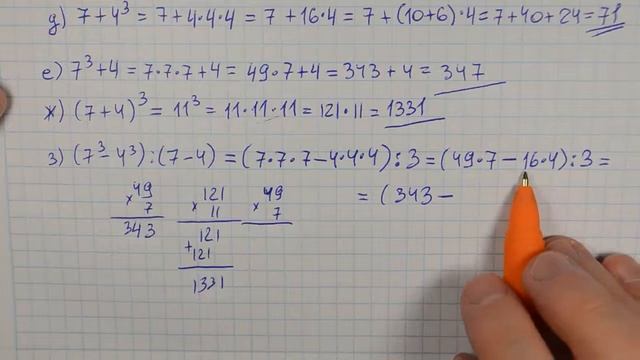 д) 7+4³ = 7+4·4·4 = 7+16·4 = 7+(10+6)·4 = 7+40+24 = 71
е) 7³+4 = 7·7·7+4 = 49·7+4 = 343+4 = 347
ж) (7+4)³ = 11³ = 11·11·11 = 121·11 = 1331
з) (7³-4³):(7-4) = (7·7·7-4·4·4):3 = (49·7-16·4):3 =
= (343-
×49 ×121 ×49
7 11 7
343 121
+121
1331